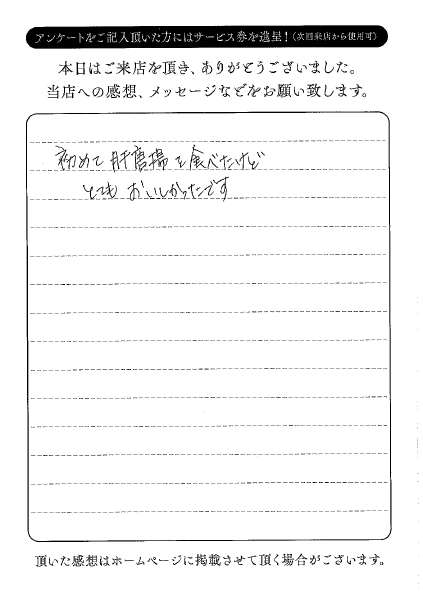 アンケートをご記入頂いた方にはサービス券を進呈！（次回来店から使用可）
本日はご来店を頂き、ありがとうございました。
当店への感想、メッセージなどをお願い致します。
初めて肝唐揚を食べたけど
とてもおいしかったです
頂いた感想はホームページに掲載させて頂く場合がございます。